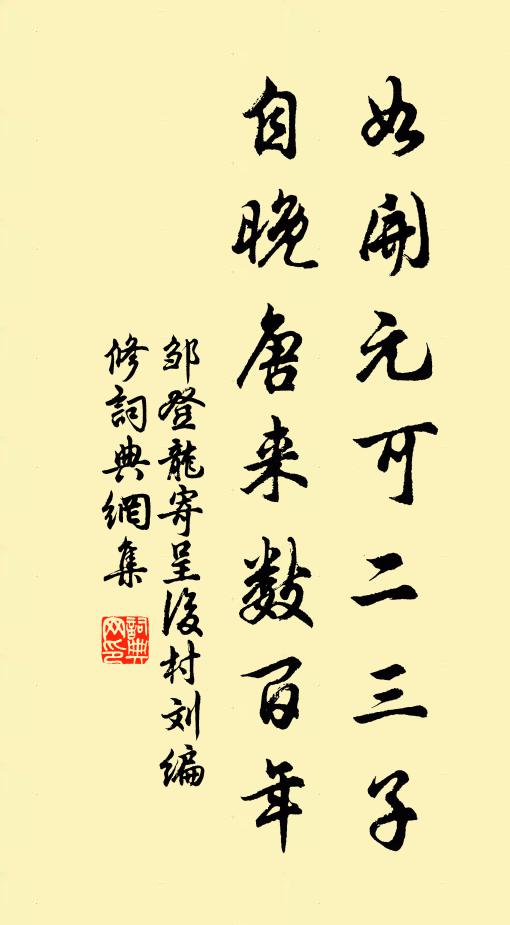 如開元可二三子
自晚唐来數百年
邹登龍寄呈後村刘編
修詞典網集
詞典
网印